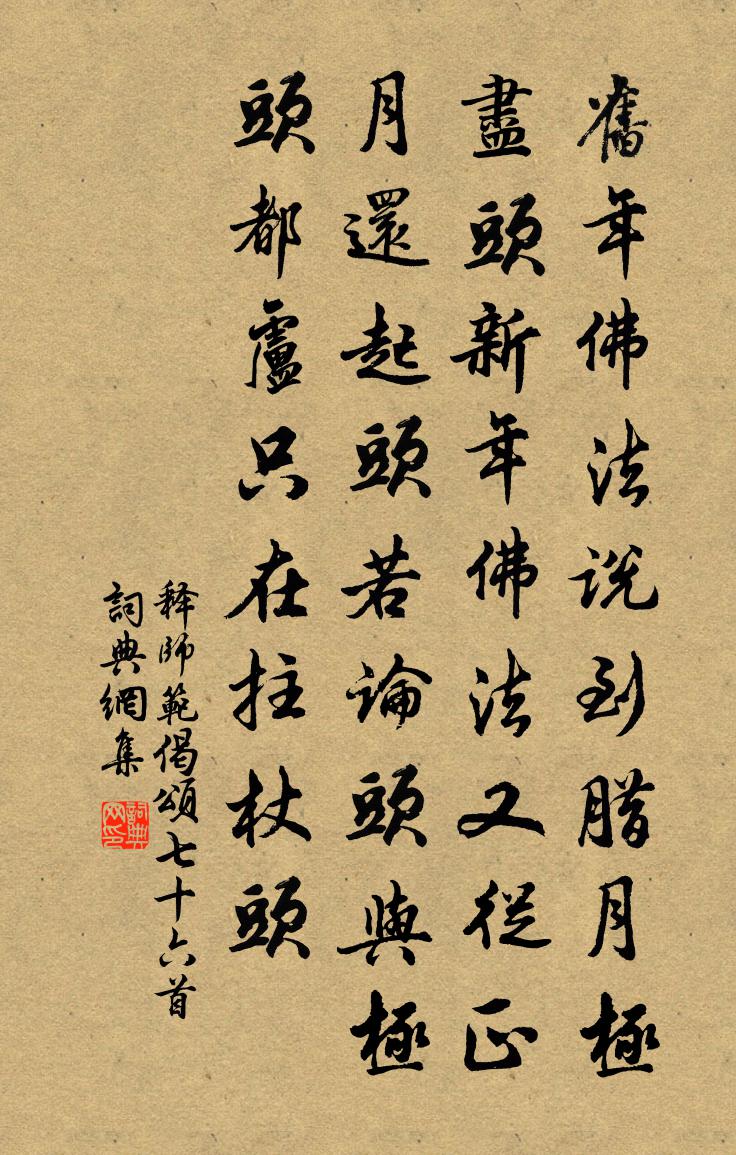 舊年佛法說到腊月極
盡頭新年佛法又從正
月還起頭若論頭與極
頭都盧只在拄杖頭
释師範偈頌七十六首
詞典網集
詞典网印